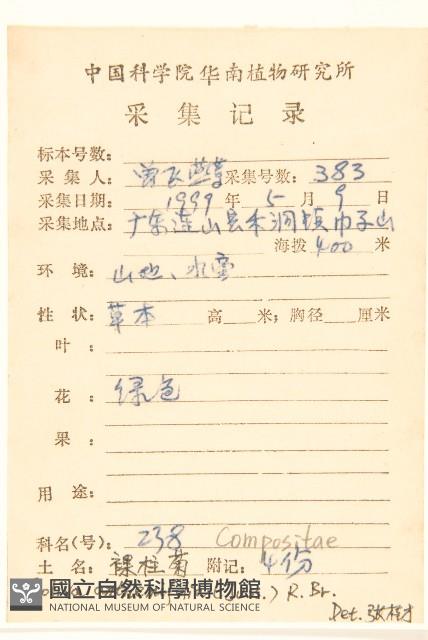 中国科学院华南植物研究所
采集记录
标本号数：
采集人：曾飞燕等 采集号数：383
采集日期：1999 年 5 月 9 日
采集地点：广东连山县禾洞镇巾子山
海拨 400 米
环境：山地、水旁
性状：草本 高 米；胸径 厘米
叶：
花：绿色
果：
用途：
科名(号)：238 Compositae
土名：裸柱菊 附记：4份
國立自然科學博物館
) R. Br.
NATIONAL MUSEUM OF NATURAL SCIENCE
Det. 张